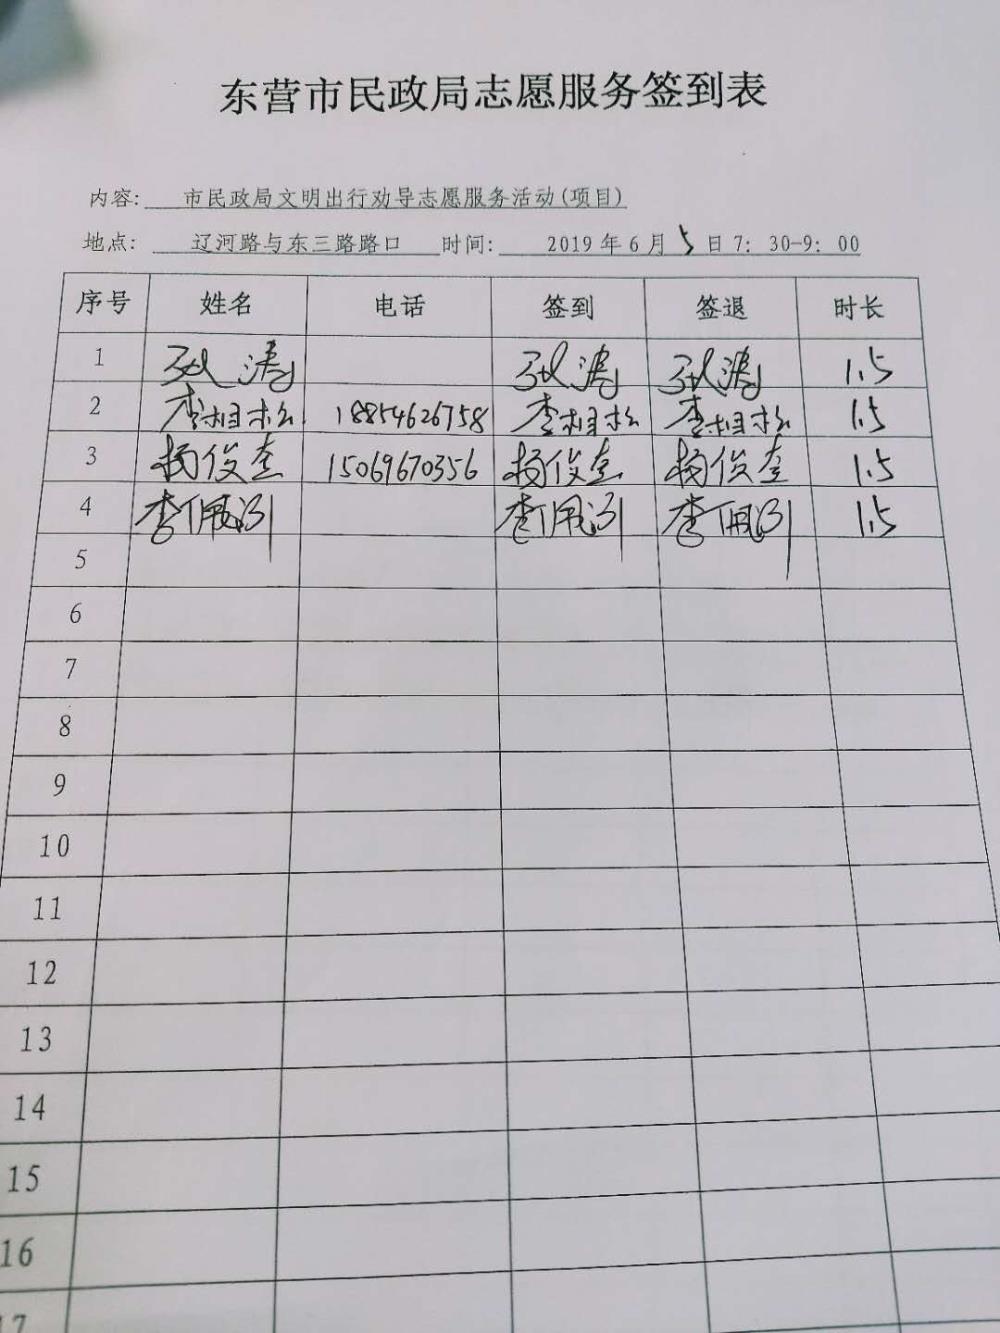 东营市民政局志愿服务签到表
内容: 市民政局文明出行劝导志愿服务活动(项目)
地点: 辽河路与东三路路口 时间: 2019年6月5日7:30-9:00
序号 姓名 电话 签到 签退 时长
1 涛 涛 涛 1.5
2 李相松 18854626758 李相松 李相松 1.5
3 杨俊奎 15069670356 杨俊奎 杨俊奎 1.5
4 李佩 李佩 李佩 1.5
5
6
7
8
9
10
11
12
13
14
15
16
17